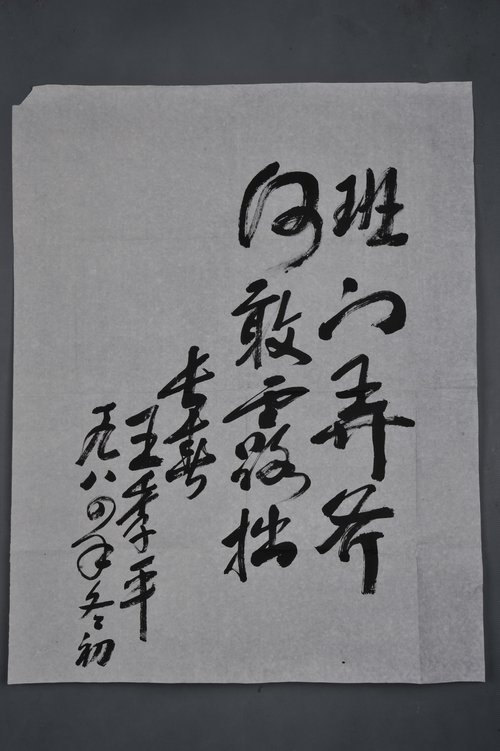 班门弄斧
何敢露拙
长春
王季平
一九八四年冬初